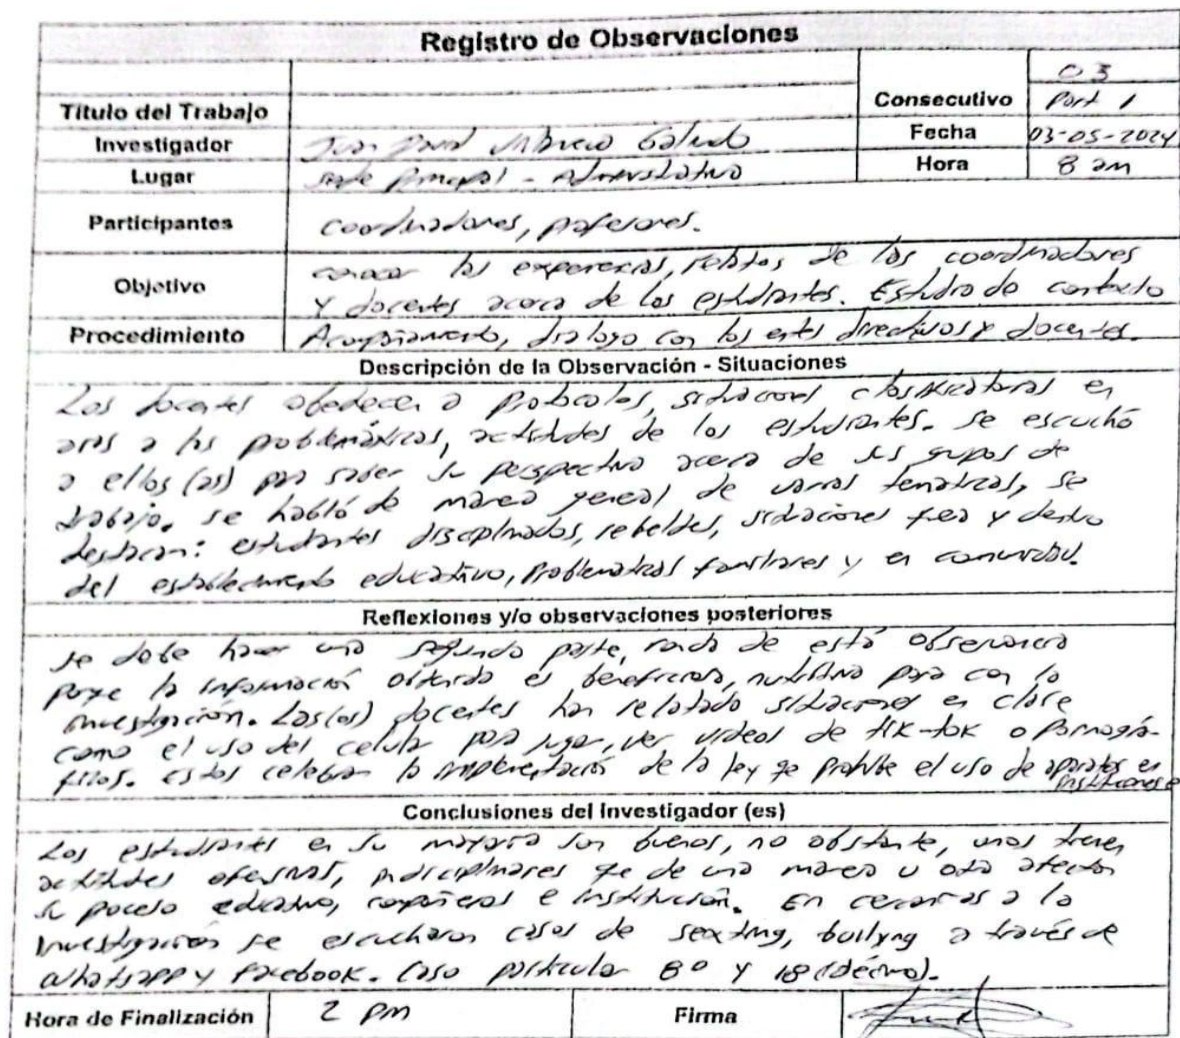 Registro de Observaciones
Título del Trabajo
Consecutivo
03
Part 1
Investigador
Juan David
Fecha
03-05-2024
Lugar
sede principal - Administrativa
Hora
8 am
Participantes
coordinadores, profesores.
Objetivo
conocer las experiencias, relatos de los coordinadores
y docentes acerca de los estudiantes. Estudio de contexto
Procedimiento
Acompañamiento, dialogo con los entes directivos y docentes.
Descripción de la Observación - Situaciones
Los docentes obedecen a protocolos, situaciones clasificatorias en
aras a las problemáticas, actitudes de los estudiantes. se escuchó
a ellos (as) para saber su perspectiva acerca de sus grupos de
trabajo. se habló de manera general de varias temáticas, se
destacan: estudiantes disciplinados, rebeldes, situaciones fuera y dentro
del establecimiento educativo, Problematicas familiares y en comunidad.
Reflexiones y/o observaciones posteriores
se debe hacer una segunda parte, ronda de está observancia
porque la información obtenida es beneficiosa, nutritiva para con la
investigación. Las(os) docentes han relatado situaciones en clase
como el uso del celular para jugar, ver videos de tik-tok o pornográ-
ficos. Estos celebran la implementación de la ley que prohíbe el uso de aparatos en
instituciones e
Conclusiones del investigador (es)
Los estudiantes en su mayoría son buenos, no obstante, unos tienen
actitudes ofensivas, indisciplinares que de una manera u otra afectan
su proceso educativo, compañeros e institución. En cercanías a la
investigación se escucharon casos de sexting, bullyng a través de
whatsapp y Facebook. Caso particular 8° y 10 (décimo).
Hora de Finalización
2 pm
Firma